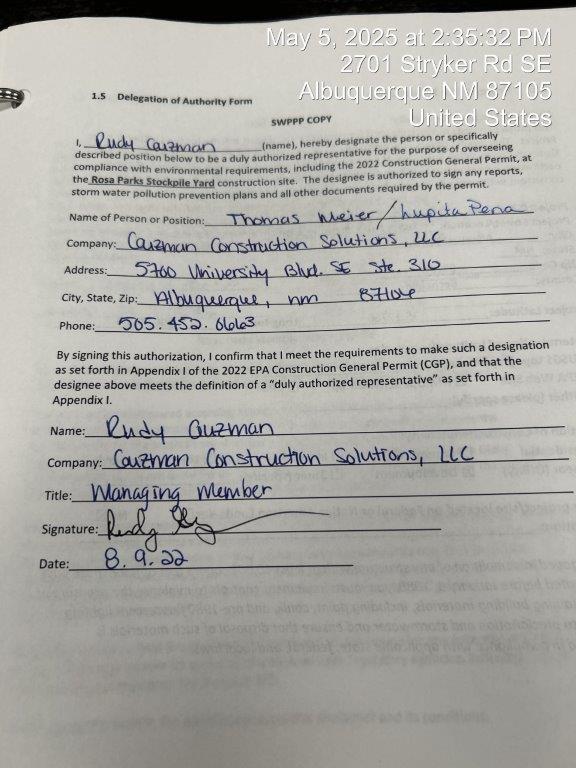 May 5, 2025 at 2:35:32 PM
2701 Stryker Rd SE
Albuquerque NM 87105
United States
1.5 Delegation of Authority Form
SWPPP COPY
I, Rudy Guzman (name), hereby designate the person or specifically
described position below to be a duly authorized representative for the purpose of overseeing
compliance with environmental requirements, including the 2022 Construction General Permit, at
the Rosa Parks Stockpile Yard construction site. The designee is authorized to sign any reports,
storm water pollution prevention plans and all other documents required by the permit.
Name of Person or Position: Thomas Meier/Lupita Pena
Company: Guzman Construction Solutions, LLC
Address: 5760 University Blvd. SE Ste. 310
City, State, Zip: Albuquerque, nm 87106
Phone: 505.452.0663
By signing this authorization, I confirm that I meet the requirements to make such a designation
as set forth in Appendix I of the 2022 EPA Construction General Permit (CGP), and that the
designee above meets the definition of a “duly authorized representative” as set forth in
Appendix I.
Name: Rudy Guzman
Company: Guzman Construction Solutions, LLC
Title: Managing Member
Signature: Rudy
Date: 8.9.22